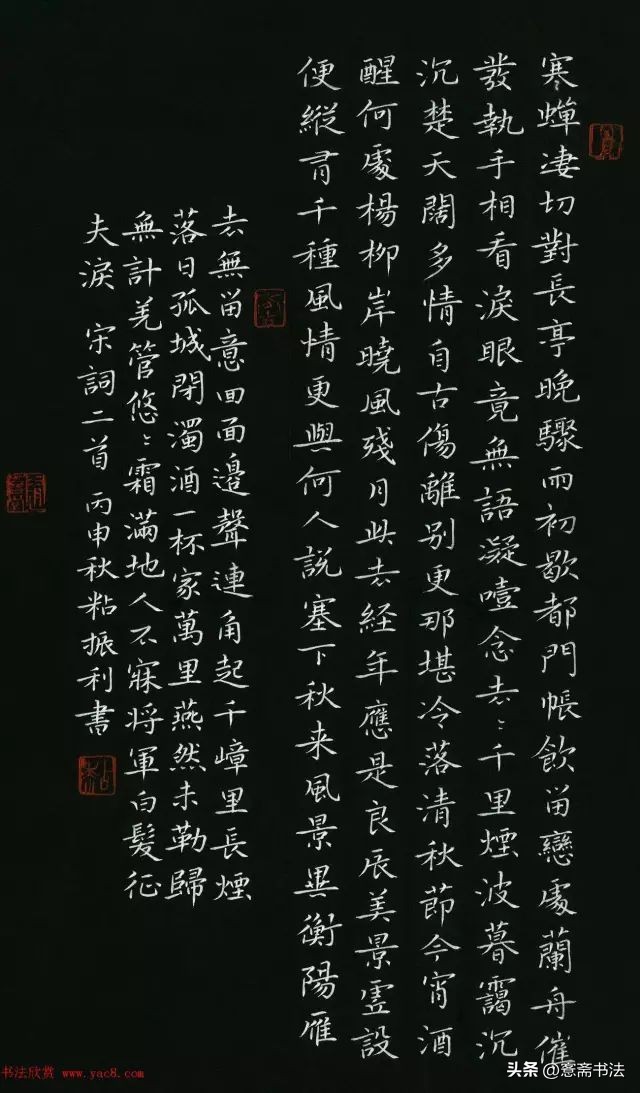 寒蟬凄切對長亭晚驟雨初歇都門帳飲畱戀處蘭舟催
發執手相看淚眼竟無語凝噎念去〻千里煙波暮靄沉
沉楚天闊多情自古傷離別更那堪冷落清秋節今宵酒
醒何處楊柳岸曉風殘月此去経年應是良辰美景虛設
便縱有千種風情更與何人說塞下秋来風景異衡陽雁
去無畱意四面邊聲連角起千嶂里長煙
落日孤城閉濁酒一杯家萬里燕然未勒歸
無計羌管悠〻霜滿地人不寐将軍白髮征
夫淚 宋詞二首 丙申秋粘振利書
书法欣赏 www.yac8.com
头条 @憙斋书法